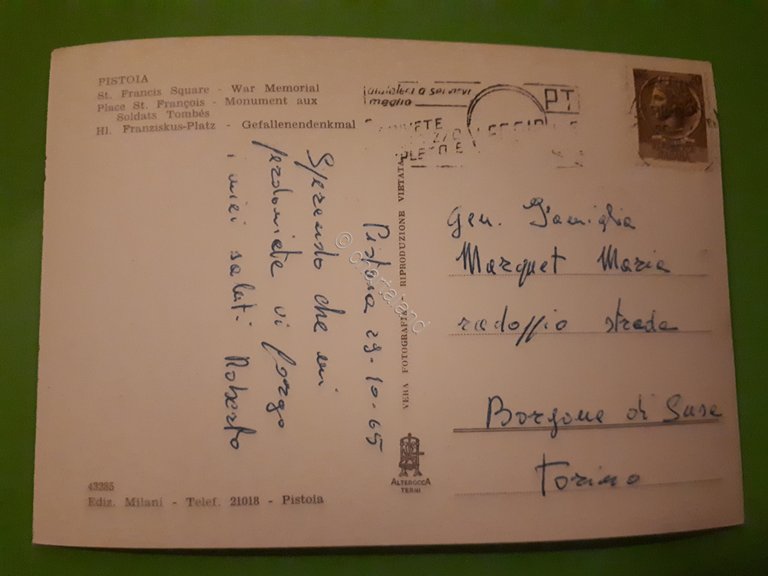 PISTOIA
St. Francis Square - War Memorial
Place St. François - Monument aux
Soldats Tombés
Hl. Franziskus-Platz - Gefallenendenkmal
meglio
PT
Pistoia 29-10-65
Sperando che mi
perdoniate vi porgo
i miei saluti Roberto
VERA FOTOGRAFIA - RIPRODUZIONE VIETATA
Gen. Famiglia
Marquet Maria
radoppio strada
Borgone di Susa
Torino
ALTEROCCA
TERNI
43285
Ediz. Milani - Telef. 21018 - Pistoia